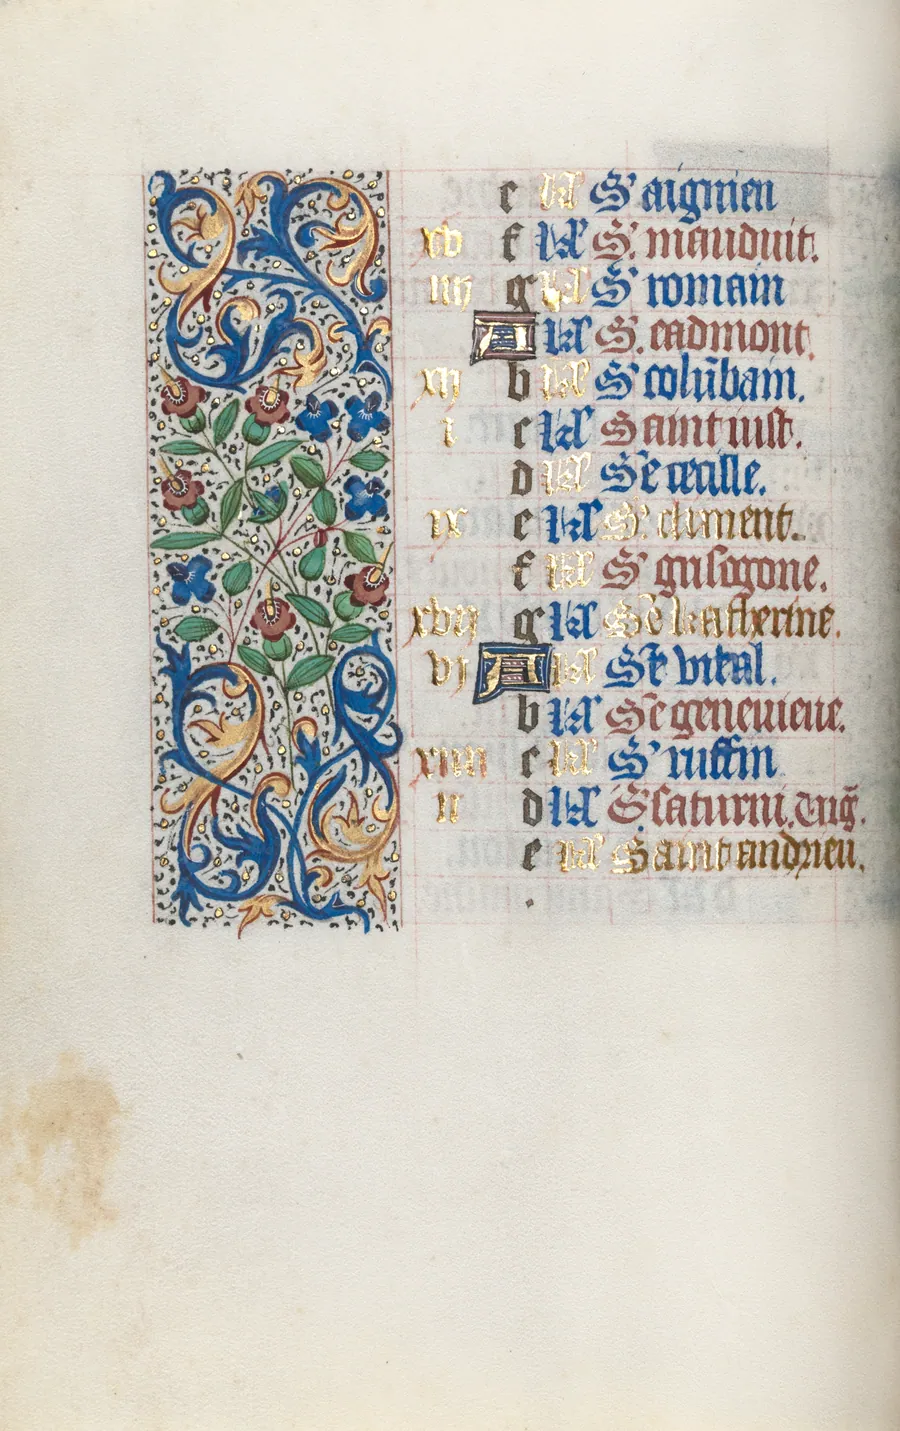 e kl S' aignien
xv f kl S'. mauduit.
iiij g kl S' romain
A kl S. eadmont.
xij b kl S' colūbain.
i c kl Saint iust.
d kl Se cecille.
ix e kl S'. clement.
f kl S' grisogone.
xvij g kl Se katherine.
vi A kl St vital.
b kl Se geneuieue.
xiiii c kl S' ruffin
ii d kl S' saturni.
e kl Saint andrieu.